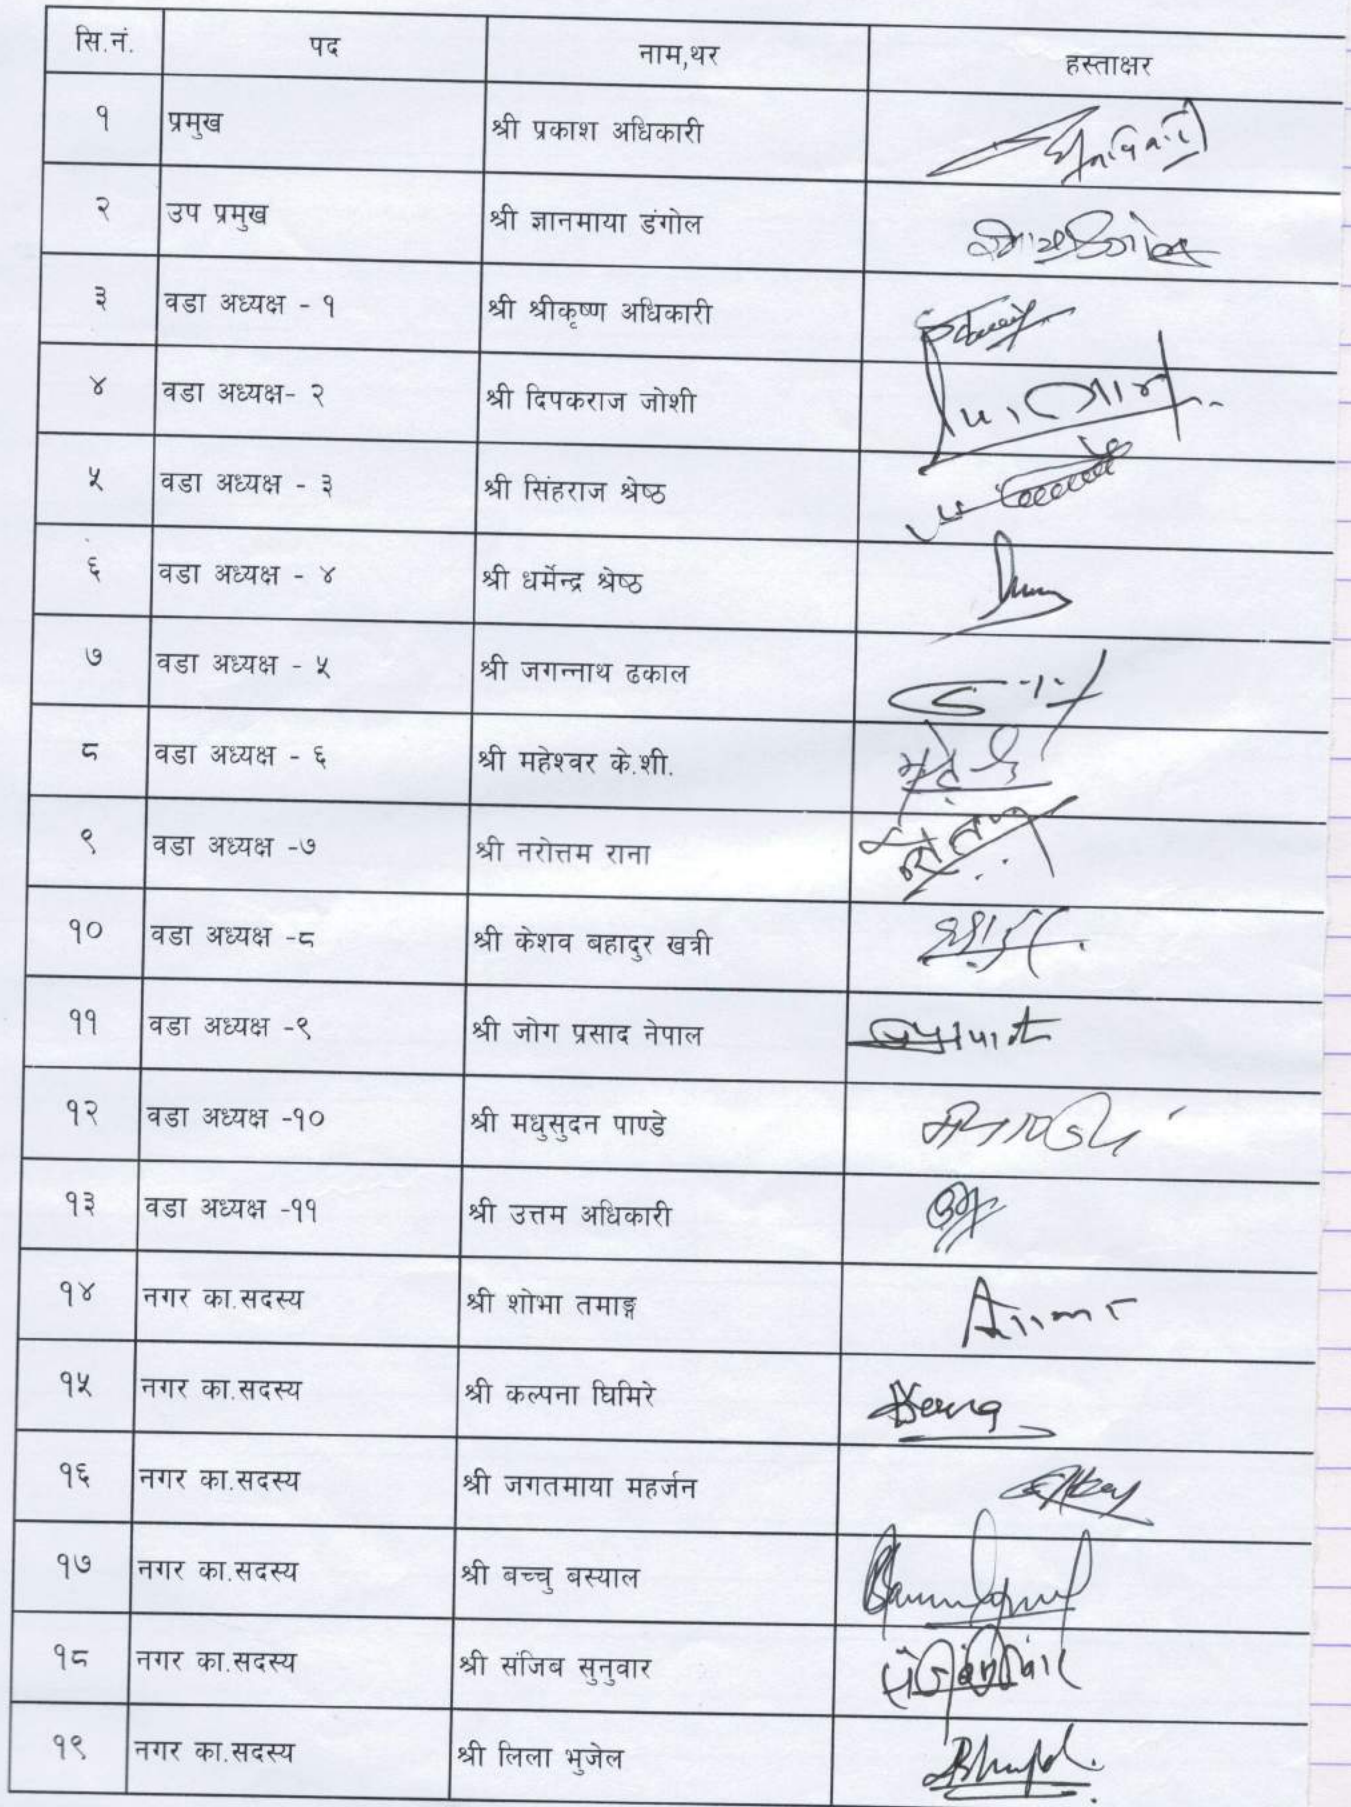 सि.नं. पद नाम,थर हस्ताक्षर
१ प्रमुख श्री प्रकाश अधिकारी
२ उप प्रमुख श्री ज्ञानमाया डंगोल
३ वडा अध्यक्ष - १ श्री श्रीकृष्ण अधिकारी
४ वडा अध्यक्ष- २ श्री दिपकराज जोशी
५ वडा अध्यक्ष - ३ श्री सिंहराज श्रेष्ठ
६ वडा अध्यक्ष - ४ श्री धर्मेन्द्र श्रेष्ठ
७ वडा अध्यक्ष - ५ श्री जगन्नाथ ढकाल
८ वडा अध्यक्ष - ६ श्री महेश्वर के.शी.
९ वडा अध्यक्ष -७ श्री नरोत्तम राना
१० वडा अध्यक्ष -८ श्री केशव बहादुर खत्री
११ वडा अध्यक्ष -९ श्री जोग प्रसाद नेपाल
१२ वडा अध्यक्ष -१० श्री मधुसुदन पाण्डे
१३ वडा अध्यक्ष -११ श्री उत्तम अधिकारी
१४ नगर का.सदस्य श्री शोभा तमाङ्ग
१५ नगर का.सदस्य श्री कल्पना घिमिरे
१६ नगर का.सदस्य श्री जगतमाया महर्जन
१७ नगर का.सदस्य श्री बच्चु बस्याल
१८ नगर का.सदस्य श्री संजिब सुनुवार
१९ नगर का.सदस्य श्री लिला भुजेल